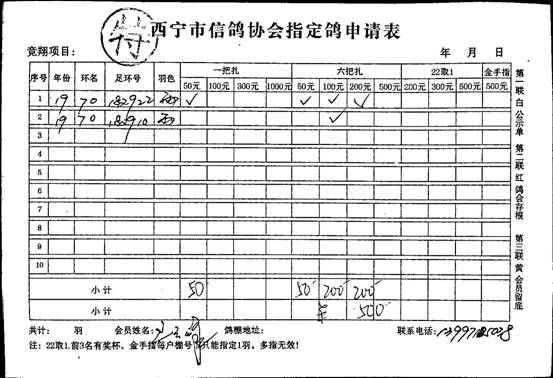 特
西宁市信鸽协会指定鸽申请表
竞翔项目： 年 月 日
序号 年份 环名 足环号 羽色 一把扎 六把扎 22取1 金手指
50元 100元 300元 1000元 50元 100元 200元 500元 200元 300元 500元 500元
1 19 70 182922 ✓ ✓ ✓ ✓
2 19 70 182910 ✓
3
4
5
6
7
8
9
10
小计 50 50 200 200
小计 500
共计： 羽 会员姓名： 鸽棚地址： 联系电话：
注：22取1，前3名有奖杯。金手指每户棚号只能指定1羽，多指无效！
第一联白公示单 第二联红鸽会存根 第三联黄会员留底